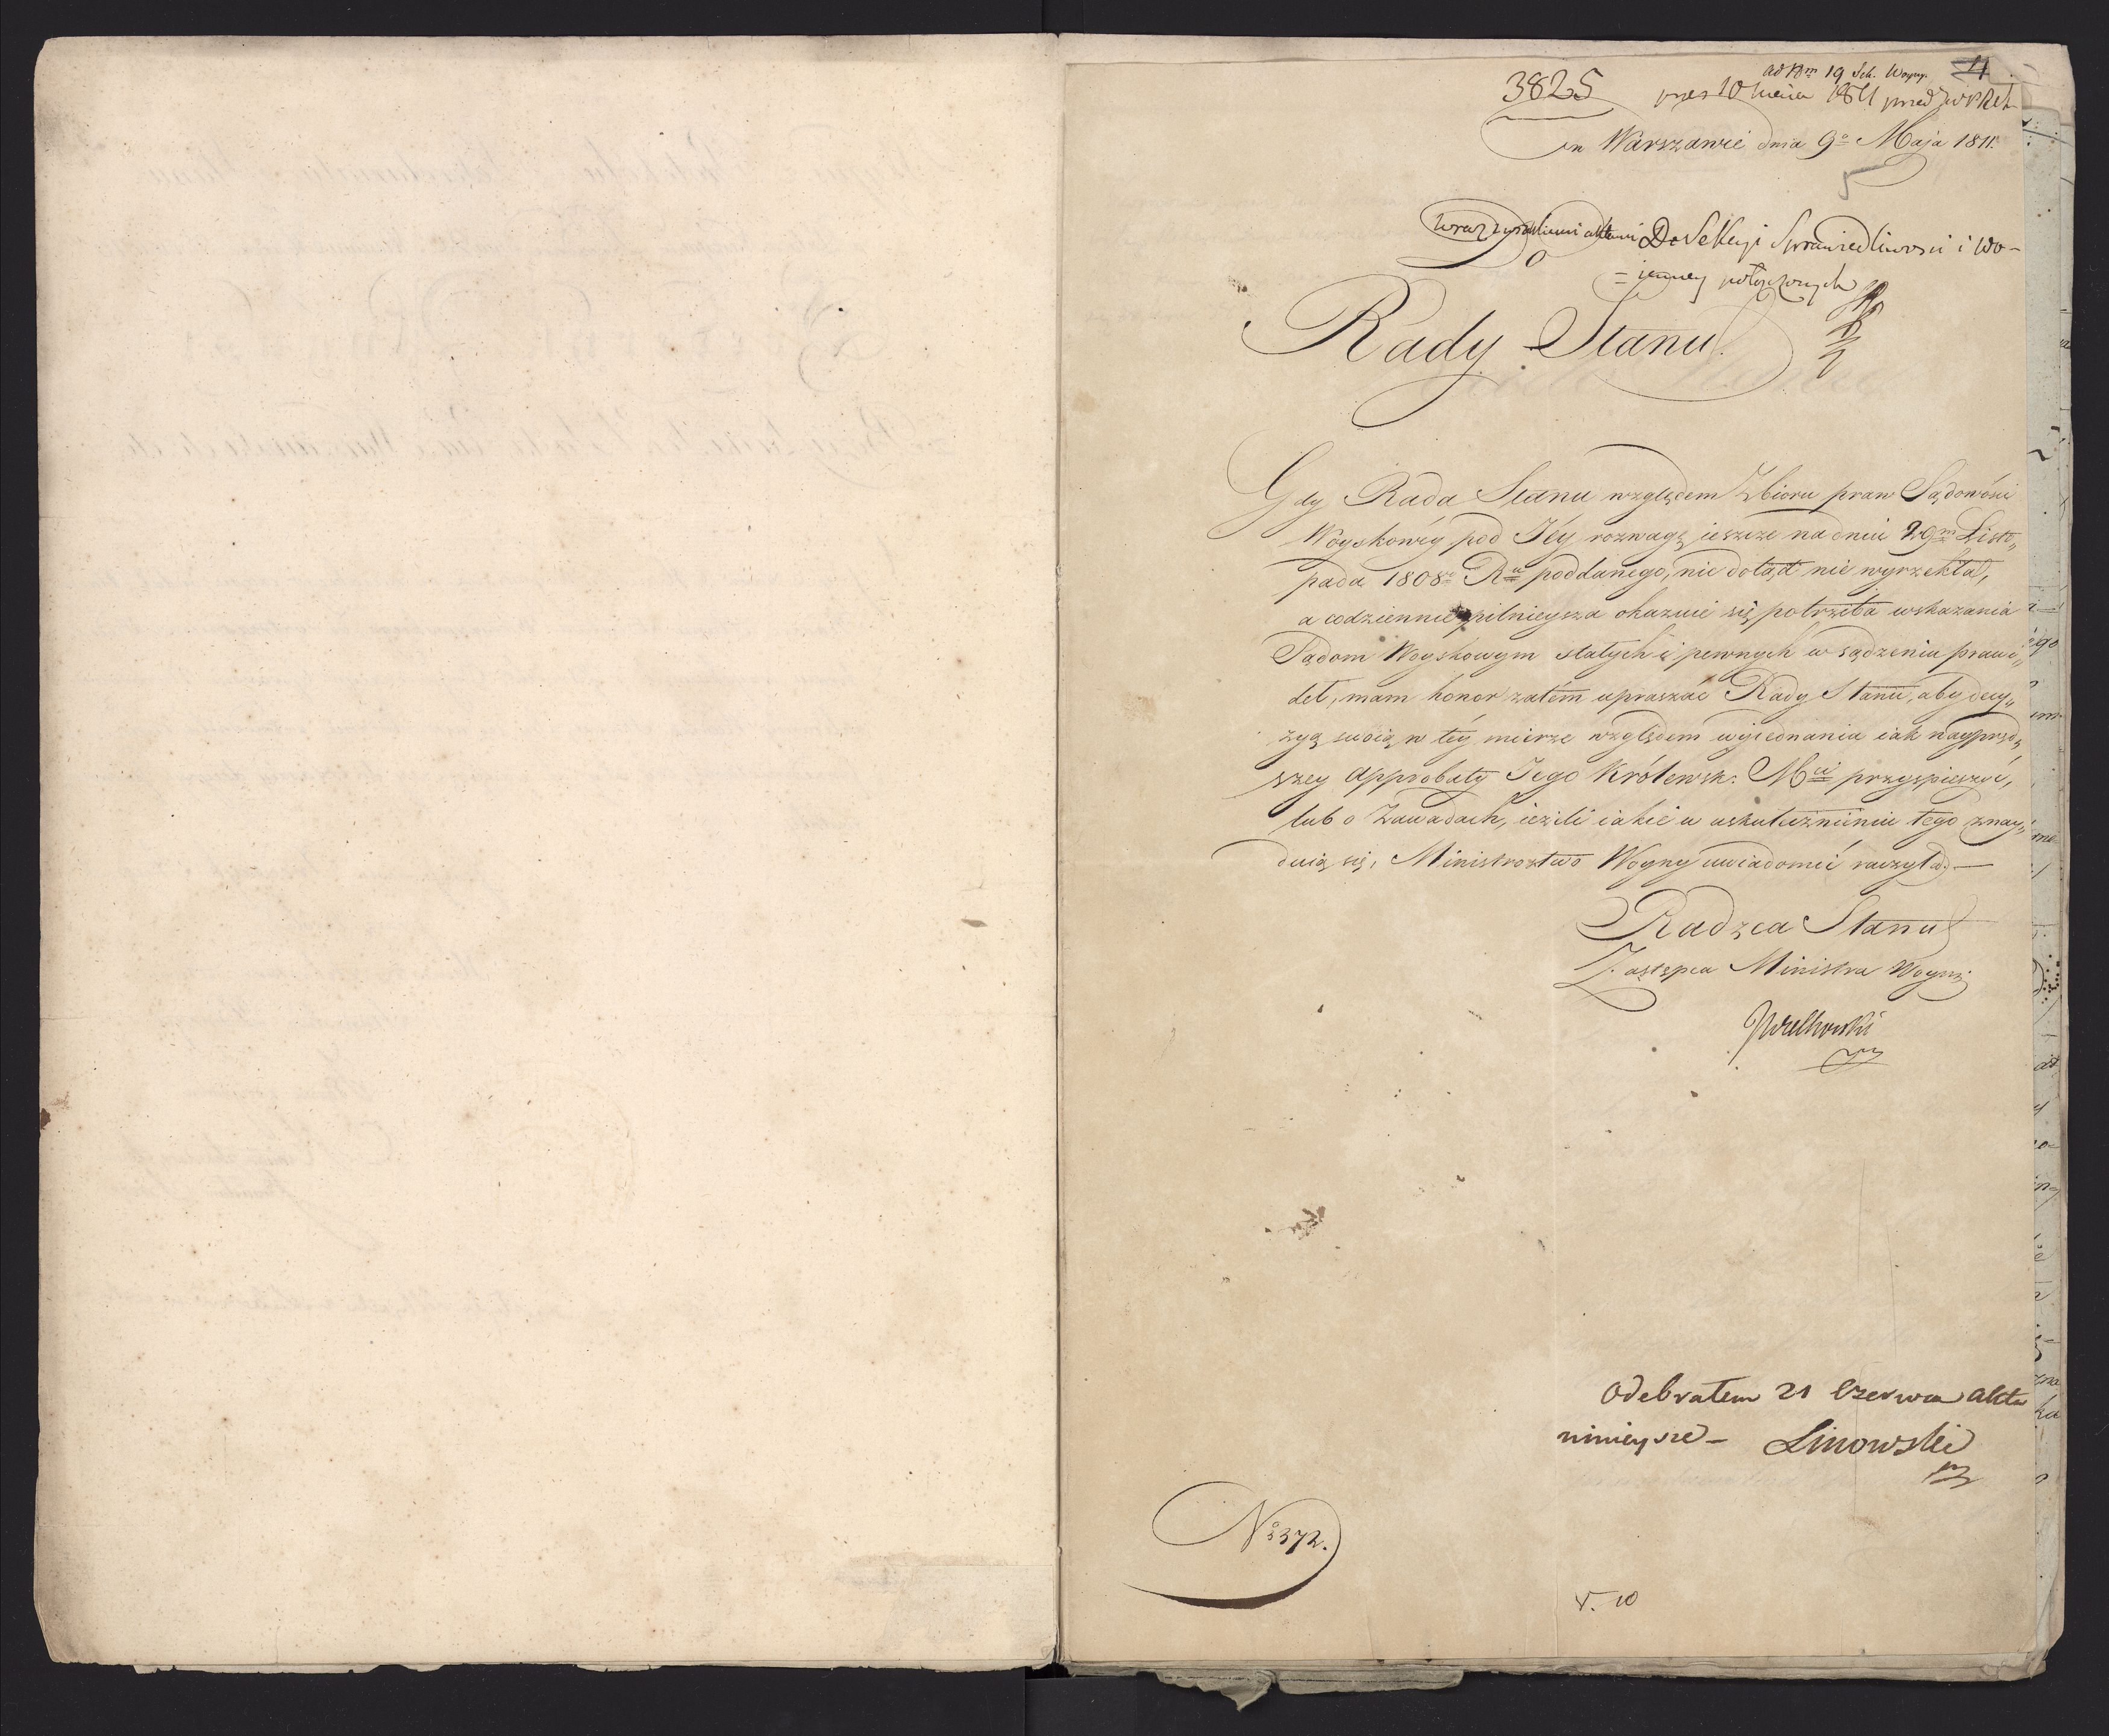 ad Num 19 Sek. Woyny. 11
3825
w Warszawie dnia 9o Maja 1811.
5
Do Sekcyi Sprawiedliwosci i Wo-
-ienney połączonych
Rady Stanu.
Gdy Rada Stanu względem Zbioru praw Sądowości
Woyskowéy pod Jéy rozwagę ieszcze na dniu 29m Listo„
pada 1808o Ru poddanego, nic dotąd nie wyrzekła,
a codziennie pilnieysza okazuie się potrzeba wskazania
Sądom Woyskowym stałych i pewnych w sądzeniu prawi„
deł, mam honor zatém upraszać Rady Stanu, aby decy„
zyą swoią w téy mierze względem wyiednania iak naypręd„
szey approbaty Jego Królewsk: Mci przyspieszyć,
lub o Zawadach, ieżeli iakie w uskutecznieniu tego znay„
duią się, Ministrostwo Woyny uwiadomić raczyła.—
Radzca Stanu
Zastępca Ministra Woyny
JWielhorski
Odebrałem 21 Czerwca akta
ninieysze – Linowski
No 3372.
V. 10